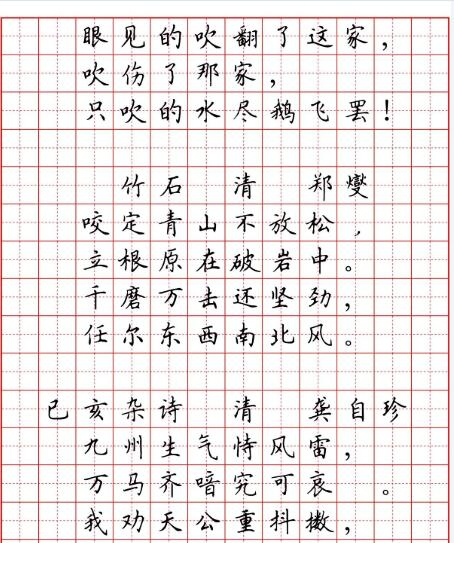 眼见的吹翻了这家，
吹伤了那家，
只吹的水尽鹅飞罢！
竹石 清 郑燮
咬定青山不放松，
立根原在破岩中。
千磨万击还坚劲，
任尔东西南北风。
已亥杂诗 清 龚自珍
九州生气恃风雷，
万马齐喑究可哀 。
我劝天公重抖擞，